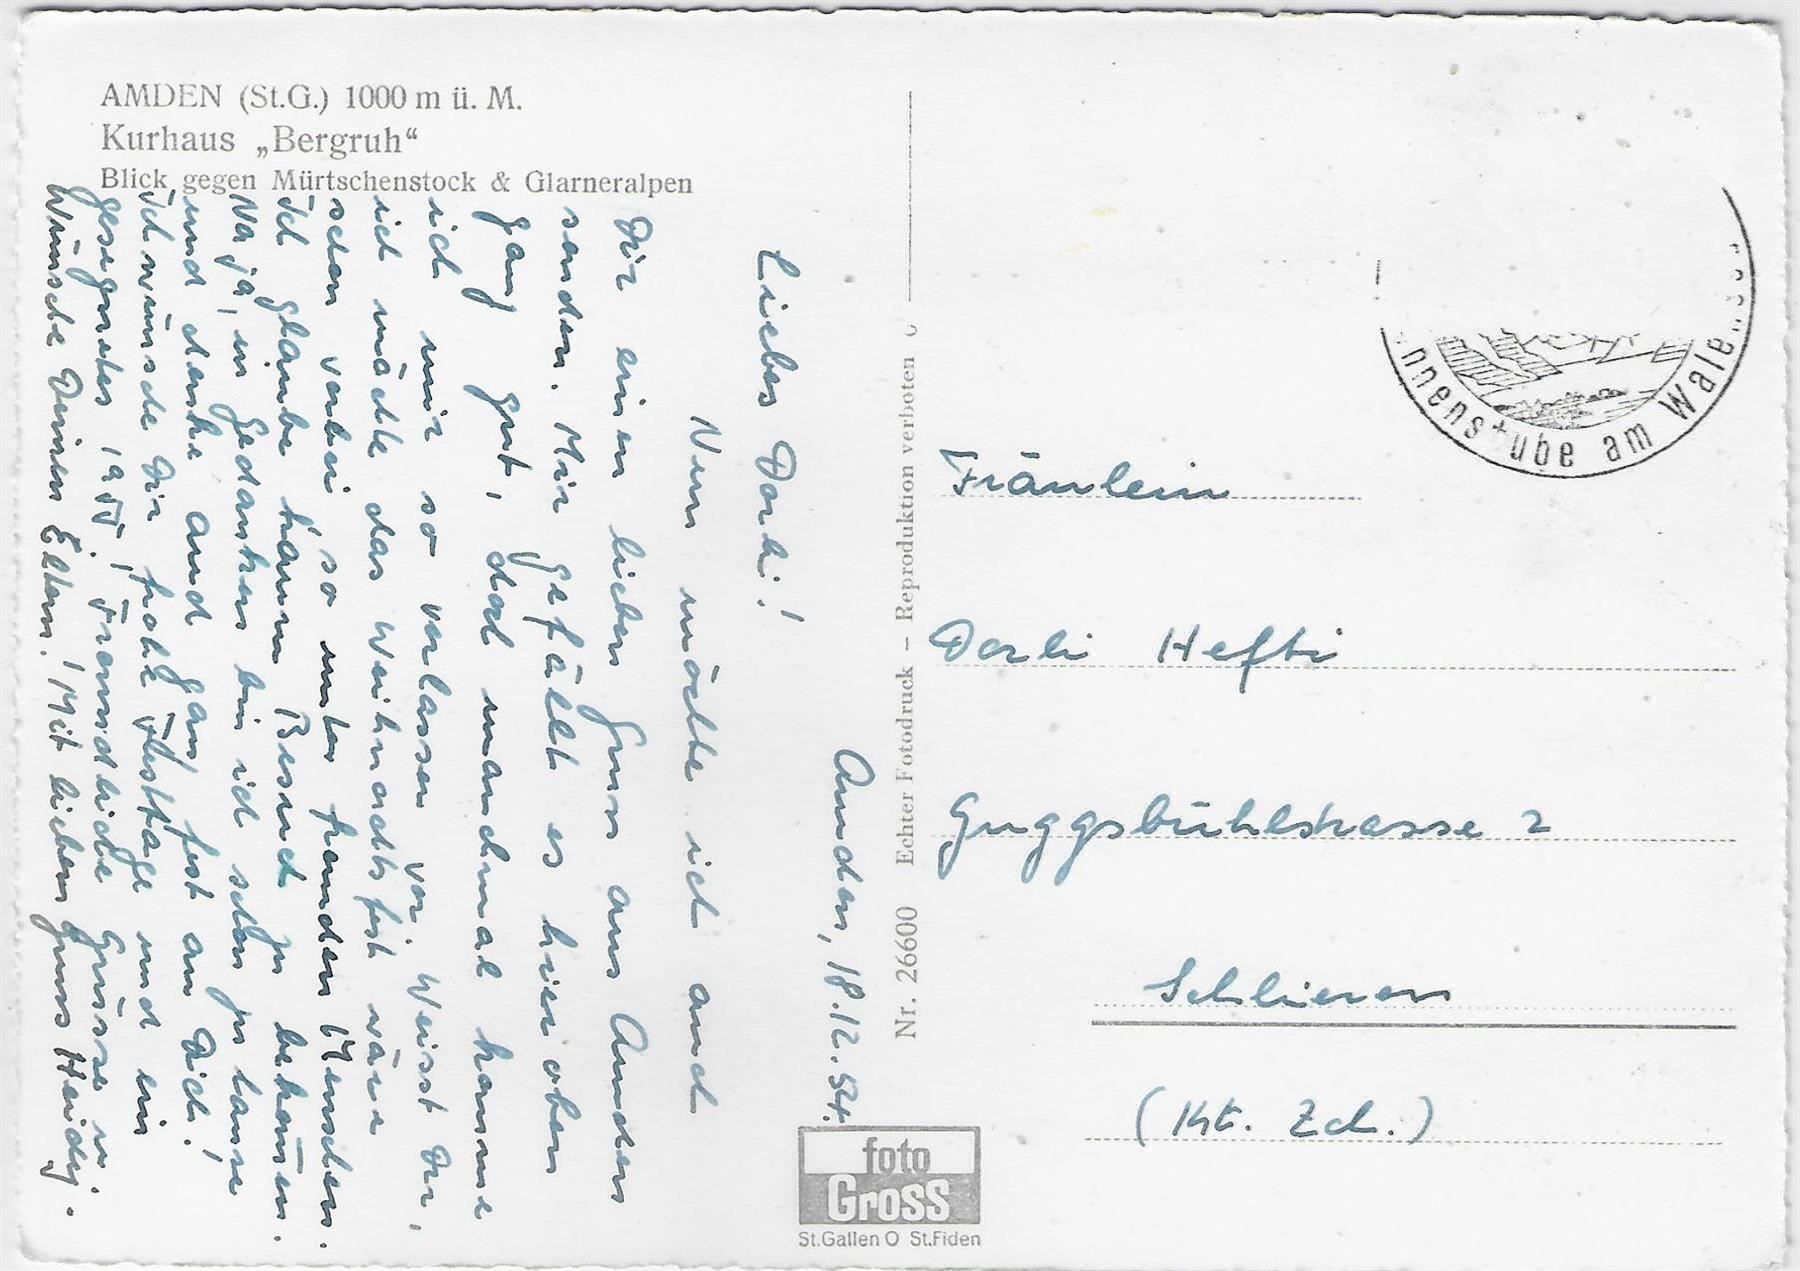 AMDEN (St.G.) 1000 m ü. M.
Kurhaus „Bergruh“
Blick gegen Mürtschenstock & Glarneralpen
Amden, 18.12.54.
Liebes Dorli!
Nun möchte ich auch
Dir einen lieben Gruss aus Amden
senden. Mir gefällt es hier oben
ganz gut, doch manchmal komme
ich mir so verlassen vor. Weisst Du,
ich möchte das Weihnachtsfest wäre
schon vorbei so unter fremden Menschen.
Ich glaube kaum Besuch zu bekommen.
Na ja, in Gedanken bin ich schon zu Hause
und denke auch ganz fest an Dich!
Ich wünsche Dir frohe Festtage und ein
gesegnetes 1955! Freundliche Grüsse u.
Wünsche Deinen Eltern! Mit liebem Gruss Heidy.
Nr. 26600 Echter Fotodruck – Reproduktion verboten
foto
Gross
St.Gallen O St.Fiden
nnenstube am Walens
Fräulein
Dorli Hefti
Guggsbühlstrasse 2
Schlieren
(Kt. Zch.)